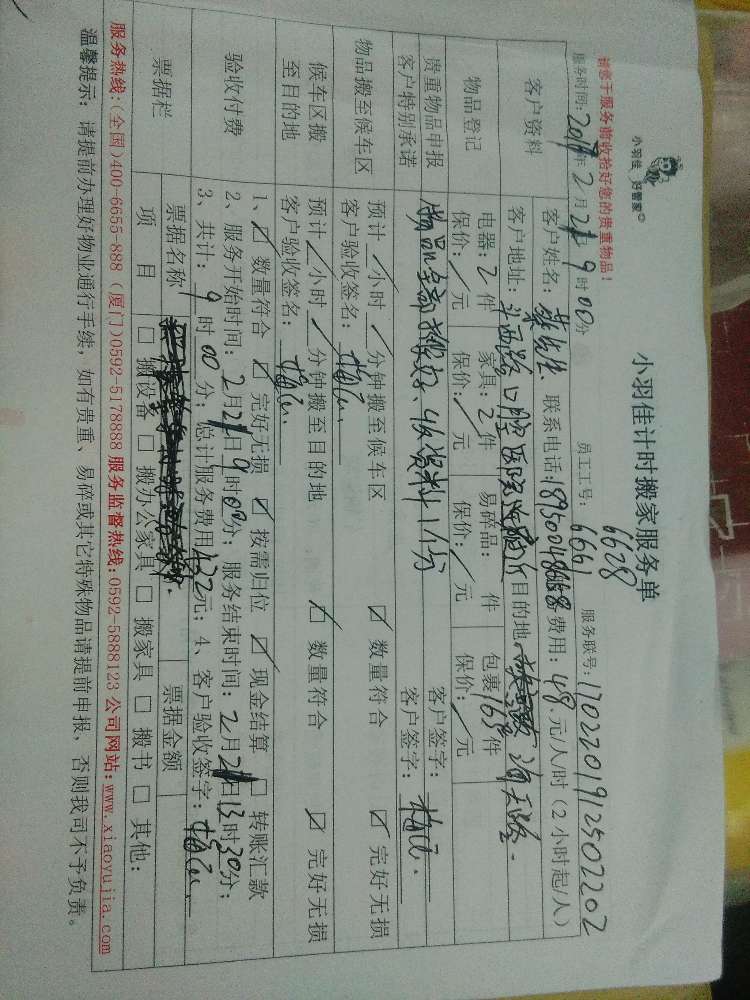 小羽佳 好管家
小羽佳计时搬家服务单
请您于服务前收拾好您的贵重物品！
员工工号：6661 6628
服务联号：1702201912502202
服务时间：2017年2月21日9时00分
客户资料
客户姓名：龚先生 联系电话：费用：48元/人/时（2小时起/人）
客户地址：斗西路口腔医院 目的地
物品登记
电器：2件 家具：2件 易碎品： 件 包裹：165件
保价：/元 保价：/元 保价：/元 保价：/元
贵重物品申报
客户特别承诺
物品全部搬好、收资料1份
客户签字：
客户签字：
物品搬至候车区
预计/小时/分钟搬至候车区 ☑ 数量符合 ☑ 完好无损
客户验收签名：
候车区搬
至目的地
预计/小时/分钟搬至目的地 ☑ 数量符合 ☑ 完好无损
客户验收签名：
验收付费
1、☑ 数量符合 ☑ 完好无损 ☑ 按需归位 ☑ 现金结算 □ 转账汇款
2、服务开始时间：2月21日9时00分；服务结束时间：2月21日13时30分；
3、共计：9时00分；总计服务费用432元；4、客户验收签字：
票据栏
票据名称 票据金额
项目 □ 搬设备 □ 搬办公家具 □ 搬家具 □ 搬书 □ 其他：
服务热线：(全国)400-6655-888 (厦门)0592-5178888 服务监督热线：0592-5888123 公司网站：www.xiaoyujia.com
温馨提示：请提前办理好物业通行手续，如有贵重、易碎或其它特殊物品请提前申报，否则我司不予负责。